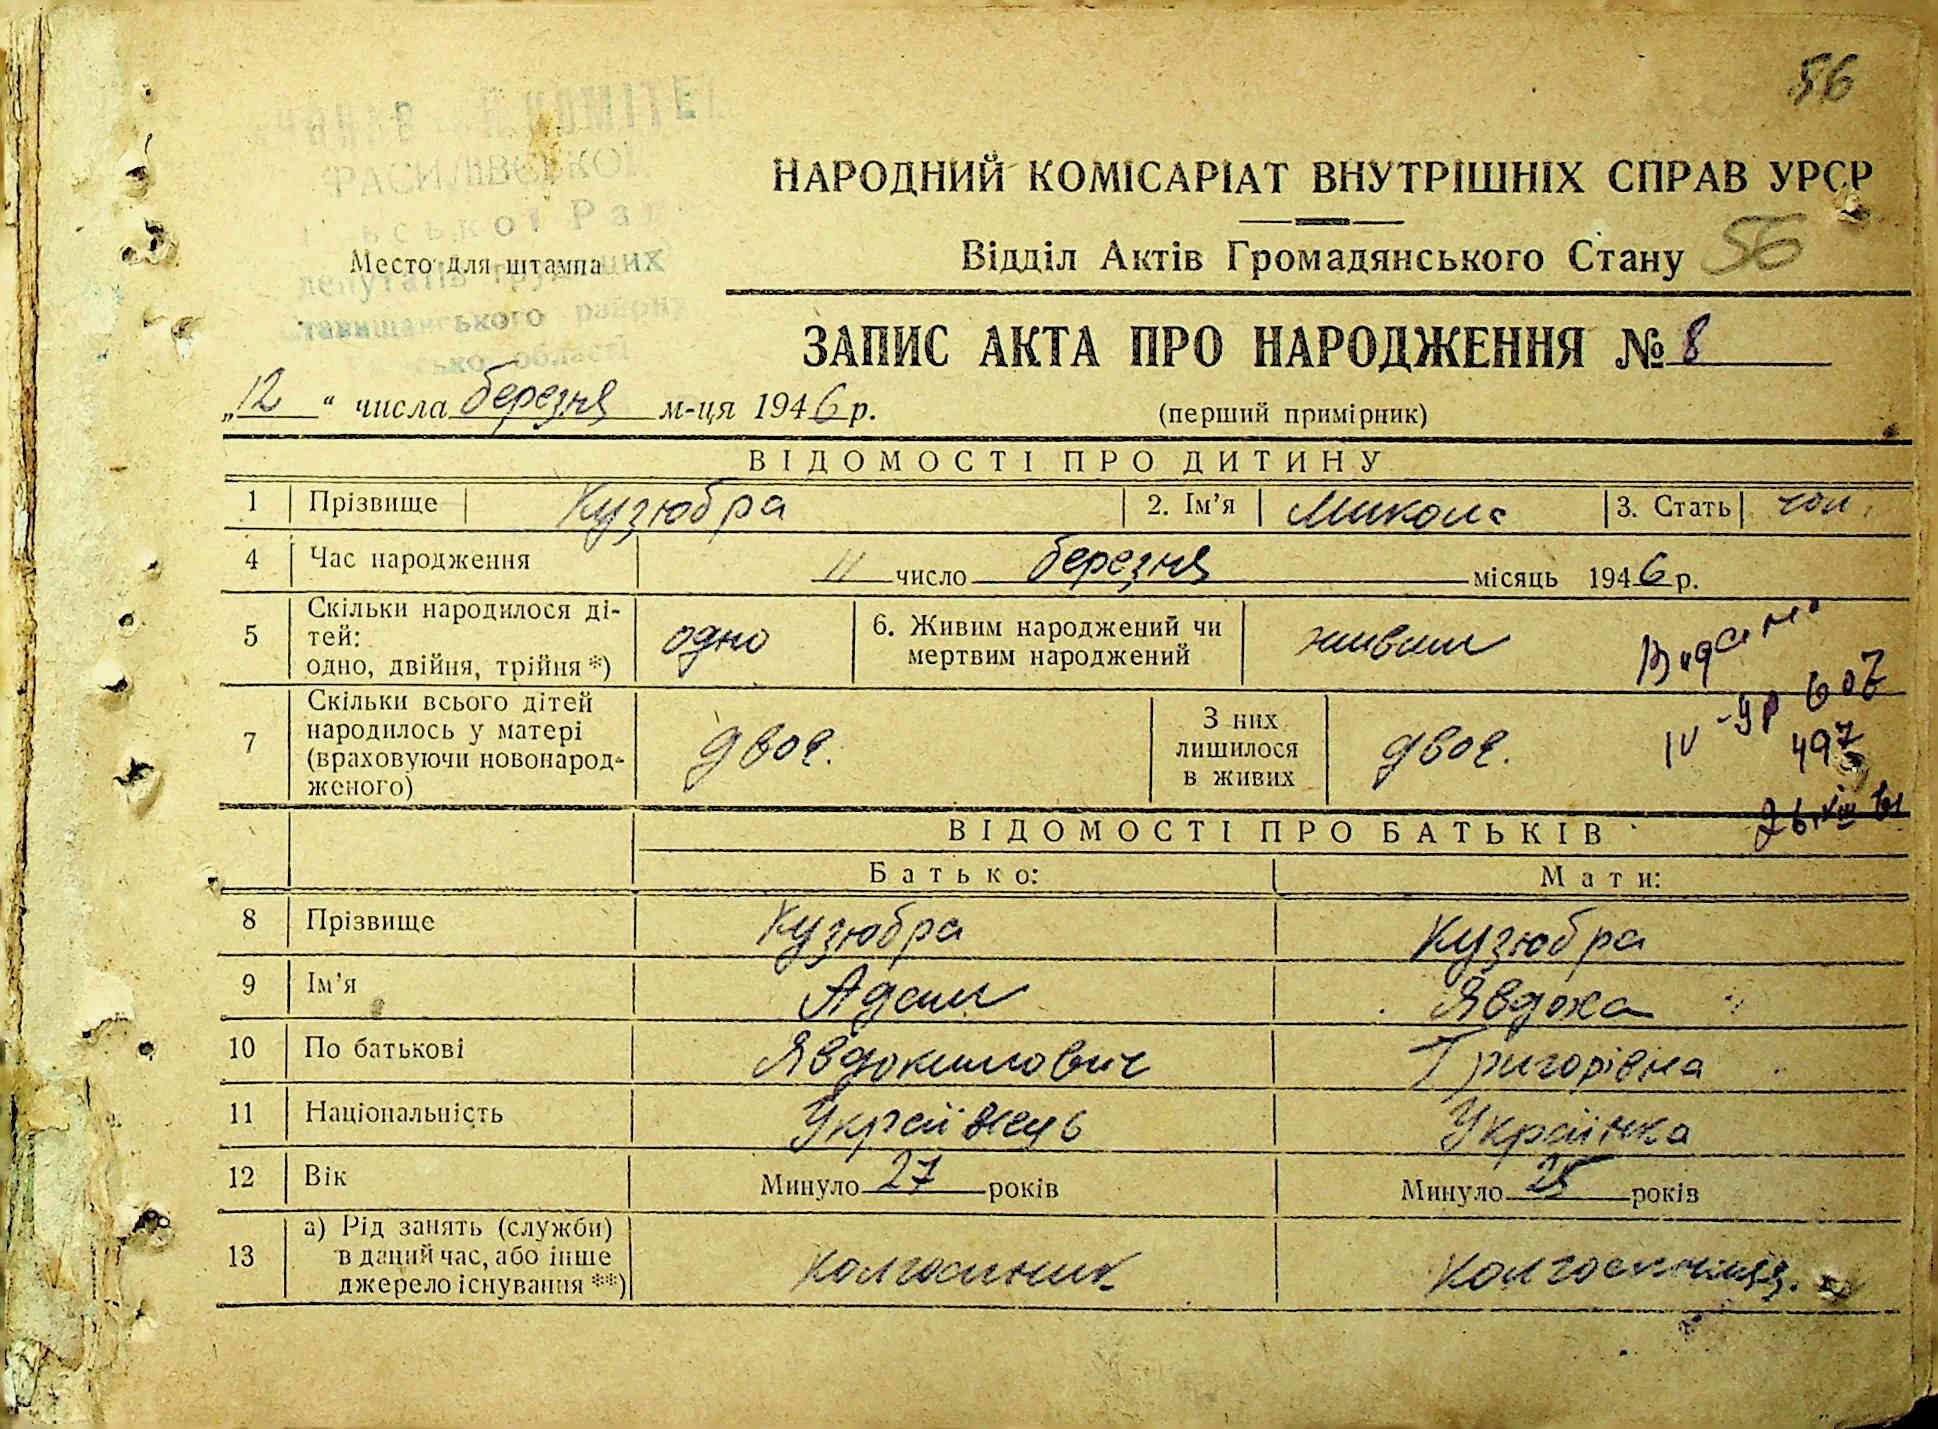 56
КОМІТЕ
ФАСИЛІВСЬКОЇ
НАРОДНИЙ КОМІСАРІАТ ВНУТРІШНІХ СПРАВ УРСР
Відділ Актів Громадянського Стану 56
Место для штампа
депутатів трудящих
Ставищанського району
області
ЗАПИС АКТА ПРО НАРОДЖЕННЯ № 8
„12“ числа березня м-ця 1946 р.
(перший примірник)
ВІДОМОСТІ ПРО ДИТИНУ
1 Прізвище Кузюбра 2. Ім’я Микола 3. Стать чол.
4 Час народження 11 число березня місяць 1946 р.
5 Скільки народилося ді-
тей:
одно, двійня, трійня *) одно 6. Живим народжений чи
мертвим народжений живим
7 Скільки всього дітей
народилось у матері
(враховуючи новонарод-
женого) двоє. З них
лишилося
в живих двоє.
Видано
IV-УР 607
497
26.VIII 61
ВІДОМОСТІ ПРО БАТЬКІВ
Батько: Мати:
8 Прізвище Кузюбра Кузюбра
9 Ім’я Адам Явдоха
10 По батькові Явдокимович Григорівна
11 Національність Українець Українка
12 Вік Минуло 27 років Минуло 25 років
13 а) Рід занять (служби)
в даний час, або інше
джерело існування **) колгоспник колгоспниця.